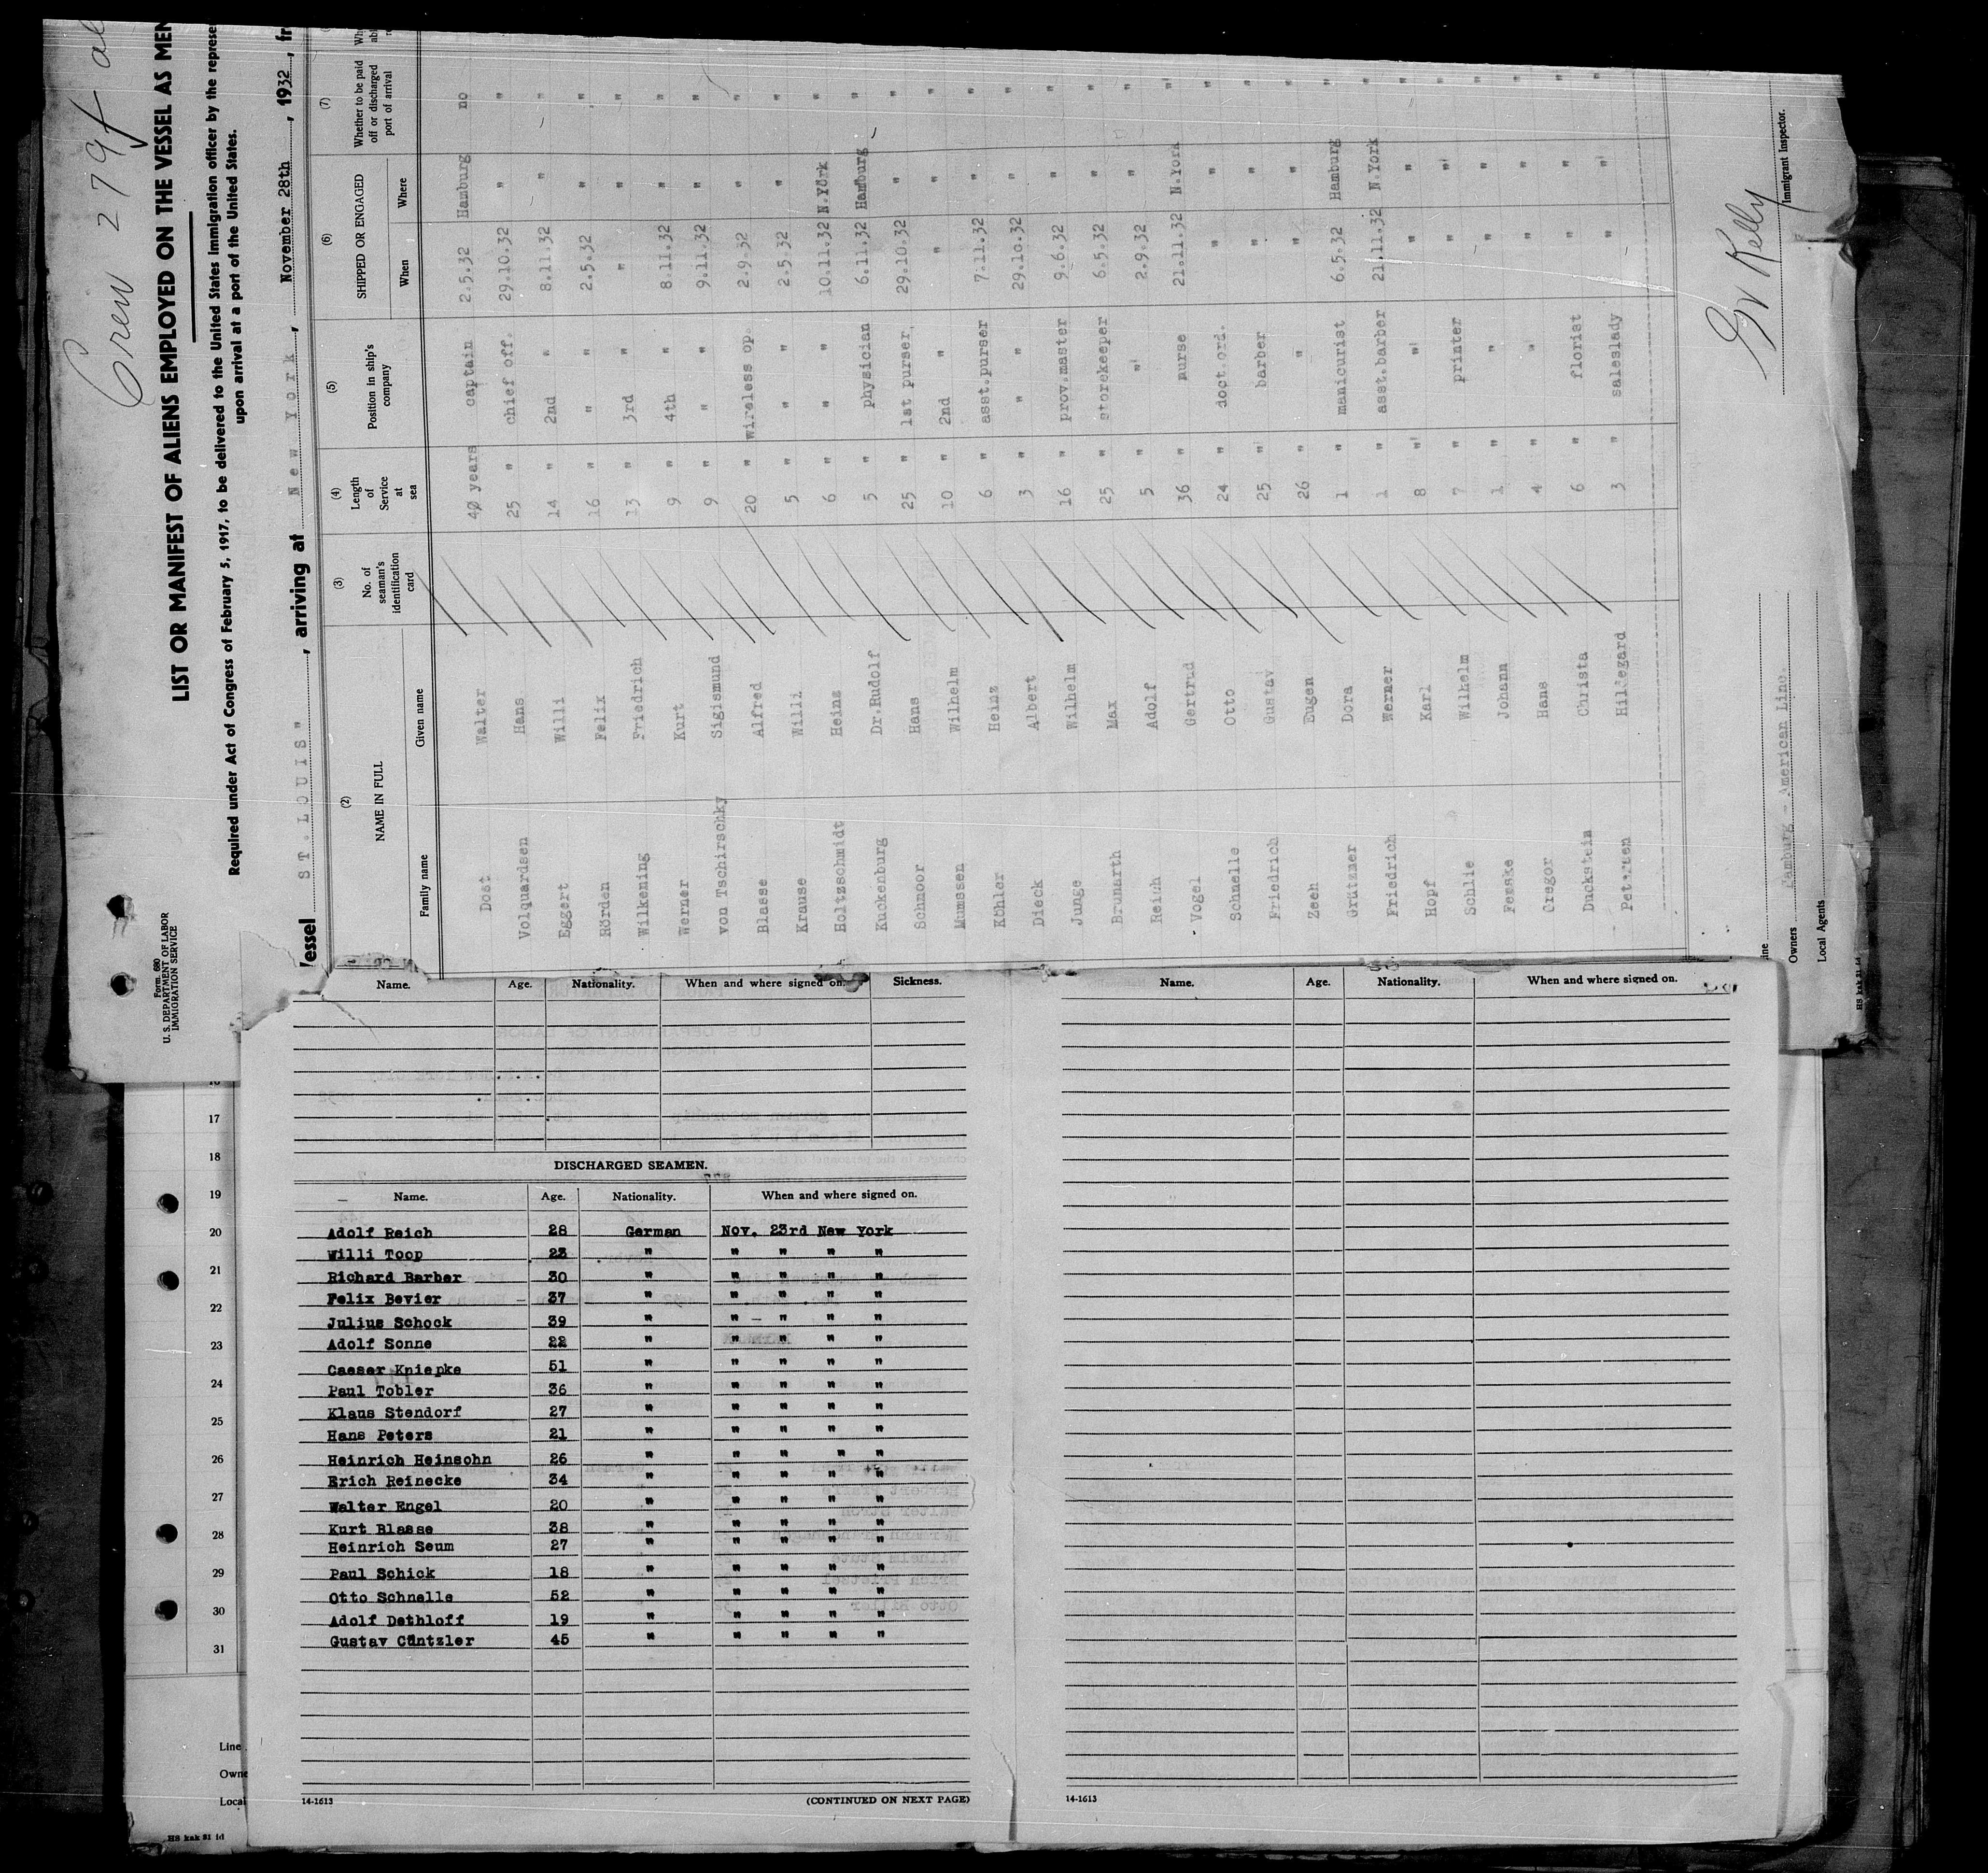 Crew 279
LIST OR MANIFEST OF ALIENS EMPLOYED ON THE VESSEL AS
Required under Act of Congress of February 5, 1917, to be delivered to the United States immigration officer by the
upon arrival at a port of the United States.
Form 680
U. S. DEPARTMENT OF LABOR
IMMIGRATION SERVICE
ST. LOUIS" , arriving at New York , November 28th , 1932
(2) (3) (4) (5) (6) (7)
NAME IN FULL
Family name Given name
No. of seaman's identification card
Length of Service at sea
Position in ship's company
SHIPPED OR ENGAGED
When Where
Whether to be paid off or discharged port of arrival
Dost Walter 40 years captain 2.5.32 Hamburg no
Volquardsen Hans 25 " chief off. 29.10.32 " "
Eggert Willi 14 " 2nd " 8.11.32 " "
Hörden Felix 16 " " " 2.5.32 " "
Wilkening Friedrich 13 " 3rd " " " "
Werner Kurt 9 " 4th " 8.11.32 " "
von Tschirschky Sigismund 9 " " " 9.11.32 " "
Blasse Alfred 20 " wireless op. 2.9.32 " "
Krause Willi 5 " " 2.5.32 " "
Holtzschmidt Heinz 6 " " 10.11.32 N.York "
Kuckenburg Dr.Rudolf 5 " physician 6.11.32 Hamburg "
Schmoor Hans 25 " 1st purser 29.10.32 " "
Mumssen Wilhelm 10 " 2nd " " " "
Köhler Heinz 6 " asst.purser 7.11.32 " "
Dieck Albert 3 " " 29.10.32 " "
Junge Wilhelm 16 " prov.master 9.6.32 " "
Brunarth Max 25 " storekeeper 6.5.32 " "
Reich Adolf 5 " " 2.9.32 " "
Vogel Gertrud 36 " nurse 21.11.32 N.York "
Schnelle Otto 24 " doct.ord. " " "
Friedrich Gustav 25 " barber " " "
Zeeh Eugen 26 " " " " "
Grützner Dora 1 " manicurist 6.5.32 Hamburg "
Friedrich Werner 1 " asst.barber 21.11.32 N.York "
Hopf Karl 8 " " " " "
Schlie Wilhelm 7 " printer " " "
Femske Johann 1 " " " " "
Gregor Hans 4 " " " " "
Duckstein Christa 6 " florist " " "
Petersen Hildegard 3 " saleslady " " "
Kelly
Immigrant Inspector.
Owners Hamburg - American Line.
Local Agents
Name. Age. Nationality. When and where signed on. Sickness.
Name. Age. Nationality. When and where signed on.
DISCHARGED SEAMEN.
Name. Age. Nationality. When and where signed on.
Adolf Reich 28 German Nov. 23rd New York
Willi Toop 23 " " " " "
Richard Barber 30 " " " " "
Felix Bevier 37 " " " " "
Julius Schock 39 " " " " "
Adolf Sonne 22 " " " " "
Caeser Kniepke 51 " " " " "
Paul Tobler 36 " " " " "
Klaus Stendorf 27 " " " " "
Hans Peters 21 " " " " "
Heinrich Heinsohn 26 " " " " "
Erich Reinecke 34 " " " " "
Walter Engel 20 " " " " "
Kurt Blasse 38 " " " " "
Heinrich Seum 27 " " " " "
Paul Schick 18 " " " " "
Otto Schnelle 52 " " " " "
Adolf Dethloff 19 " " " " "
Gustav Cüntzler 45 " " " " "
14-1613 (CONTINUED ON NEXT PAGE)
14-1613
17
18
19
20
21
22
23
24
25
26
27
28
29
30
31
Line
Owne
Local
HS kak 31 1d